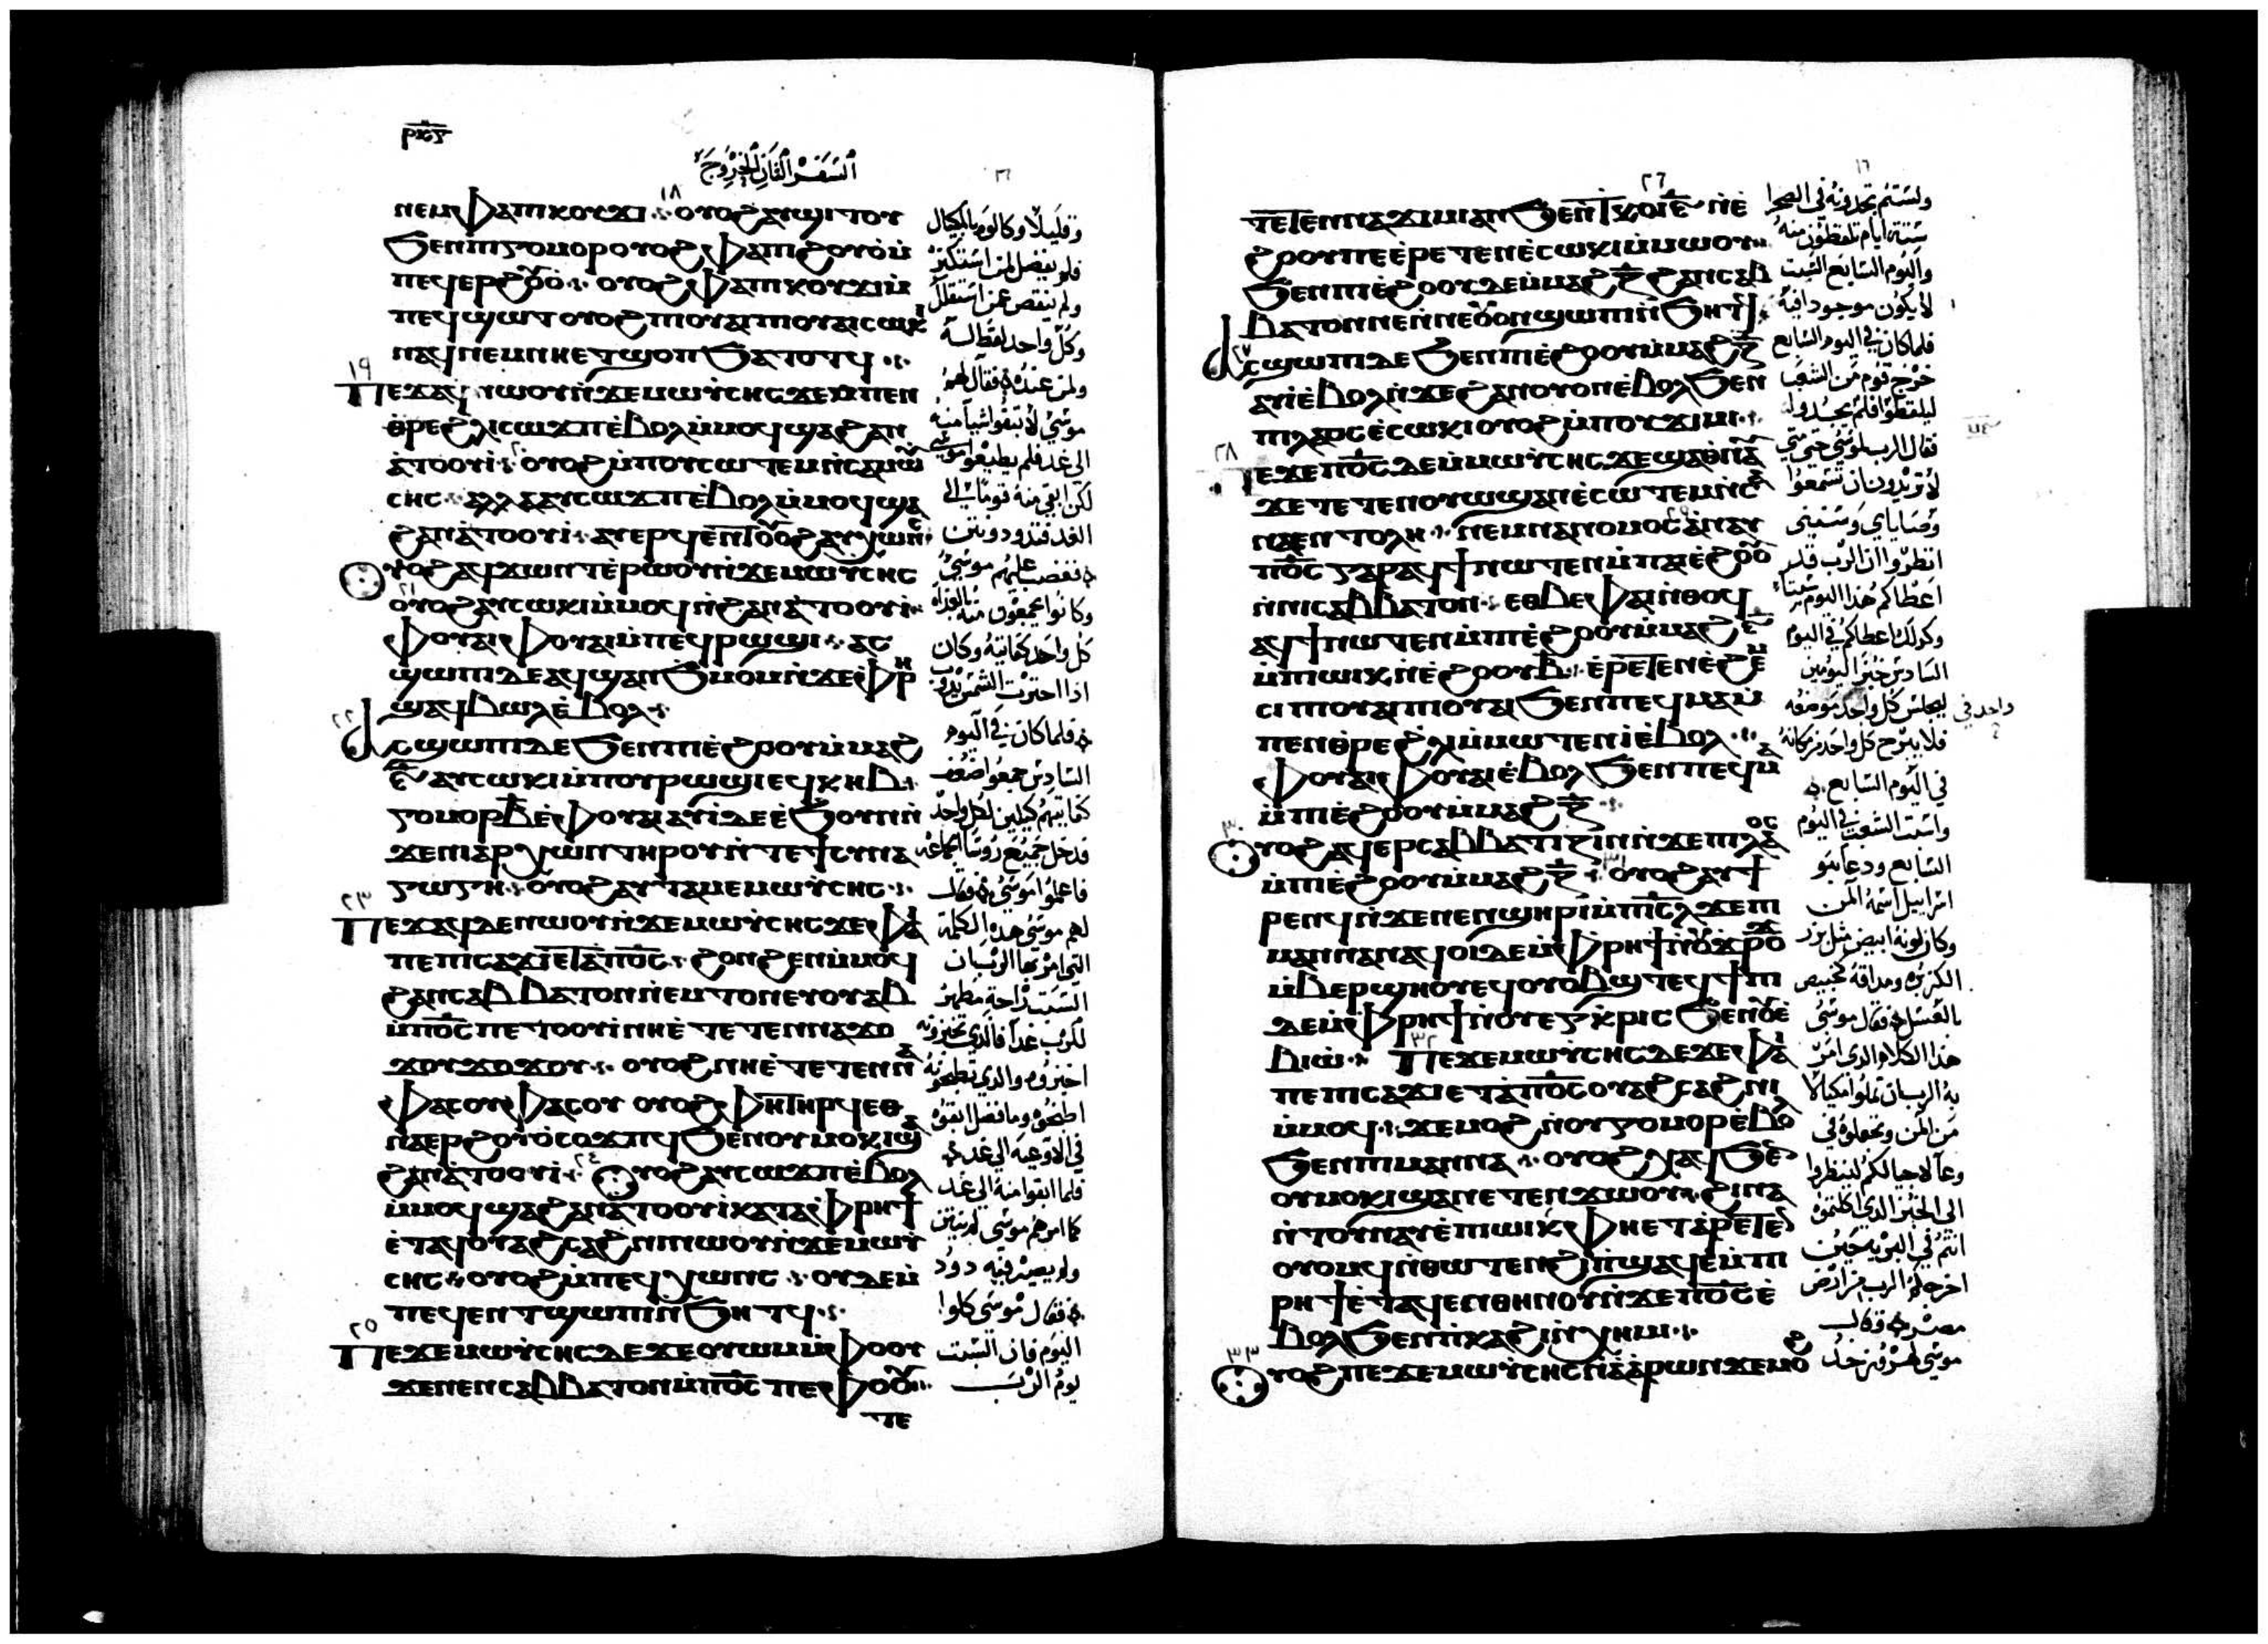 ⲣⲕⲋ
السفر الثاني الخروج
١٨
ⲛⲉⲙ ⲫⲁⲡⲓⲕⲟⲩϫⲓ ⲟⲩⲟϩ ⲁⲩϣⲓⲧⲟⲩ
ϧⲉⲛⲡⲓⲅⲟⲙⲟⲣ ⲟⲩⲟϩ ⲫⲁⲡⲓϩⲟⲩⲟ̀ ⲙ̀
ⲡⲉϥⲉⲣϩⲟⲩⲟ ⲟⲩⲟϩ ⲫⲁⲡⲓⲕⲟⲩϫⲓ ⲙ̀
ⲡⲉϥϣⲱⲧ ⲟⲩⲟϩ ⲡⲓⲟⲩⲁⲓ ⲡⲓⲟⲩⲁⲓ ⲥⲱⲕⲓ
ⲛⲁϥ ⲛⲉⲙ ⲛⲏⲉⲧϣⲟⲡ ϧⲁⲧⲟⲧϥ
١٩
ⲡⲉϫⲁϥ ⲛⲱⲟⲩ ⲛ̀ϫⲉⲙⲱⲩⲥⲏⲥ ϫⲉⲙⲡⲉⲛ
ⲑⲣⲉϩⲗⲓ ⲥⲱϫⲡ ⲉ̀ⲃⲟⲗ ⲙ̀ⲙⲟϥ ϣⲁϩⲁⲛ
ⲁ̀ⲧⲟⲟⲩⲓ̀ ⲟⲩⲟϩ ⲙ̀ⲡⲟⲩⲥⲱⲧⲉⲙ ⲛ̀ⲥⲁⲙⲱⲩ
ⲥⲏⲥ ⲁⲗⲗⲁ ⲁⲩⲥⲱϫⲡ ⲉ̀ⲃⲟⲗ ⲙ̀ⲙⲟϥ ϣⲁ
ϩⲁⲛⲁ̀ⲧⲟⲟⲩⲓ̀ ⲁⲩⲉⲣϥⲉⲛⲧ ⲟⲩⲟϩ ⲁϥⲭⲱⲛⲥ
ⲟⲩⲟϩ ⲁϥϫⲱⲛⲧ ⲉ̀ⲣⲱⲟⲩ ⲛ̀ϫⲉⲙⲱⲩⲥⲏⲥ
ⲟⲩⲟϩ ⲁⲩⲥⲱⲕⲓ ⲙ̀ⲙⲟϥ ⲛ̀ϩⲁⲛⲁ̀ⲧⲟⲟⲩⲓ̀
ⲫⲟⲩⲁⲓ ⲫⲟⲩⲁⲓ ⲙ̀ⲡⲉϥⲣⲱϣⲓ ⲁⲥ
ϣⲱⲡⲓ ⲇⲉ ⲁϥϣⲁⲛϧⲙⲟⲙ ⲛ̀ϫⲉⲫⲣⲏ
ϣⲁϥⲃⲱⲗ ⲉ̀ⲃⲟⲗ
٢٢
ⲁⲥϣⲱⲡⲓ ⲇⲉ ϧⲉⲛⲡⲓⲉ̀ϩⲟⲟⲩ ⲙ̀ⲙⲁϩ
ⲋ̅ ⲁⲩⲥⲱⲕⲓ ⲙ̀ⲡⲟⲩⲣⲱϣⲓ ⲉϥⲕⲏⲃ
ⲅⲟⲙⲟⲣ ⲃ̅ ⲉ̀ⲫⲟⲩⲁⲓ ⲁⲩⲓ̀ ⲇⲉ ⲉ̀ϧⲟⲩⲛ ⲛ̀
ϫⲉⲛⲓⲁⲣⲭⲱⲛ ⲧⲏⲣⲟⲩ ⲛ̀ⲧⲉϯⲥⲩⲛⲁ
ⲅⲱⲅⲏ ⲟⲩⲟϩ ⲁⲩⲧⲁⲙⲉⲙⲱⲩⲥⲏⲥ
٢٣
ⲡⲉϫⲁϥ ⲇⲉ ⲛⲱⲟⲩ ⲛ̀ϫⲉⲙⲱⲩⲥⲏⲥ ϫⲉⲫⲁⲓ
ⲡⲉ ⲡⲓⲥⲁϫⲓ ⲉⲧⲁⲡ̅ⲟ̅ⲥ̅ ϩⲟⲛϩⲉⲛ ⲙ̀ⲙⲟϥ
ϩⲁⲛⲥⲁⲃⲃⲁⲧⲟⲛ ⲛ̀ⲉⲙⲧⲟⲛ ⲉⲩⲟⲩⲁⲃ
ⲙ̀ⲡ̅ⲟ̅ⲥ̅ ⲡⲉⲧⲟⲟⲩⲓ̀ ⲛⲏⲉ̀ⲧⲉⲧⲉⲛⲛⲁϫⲟ
ϫⲟⲩ ϫⲟϫⲟⲩ ⲟⲩⲟϩ ⲛⲏⲉ̀ⲧⲉⲧⲉⲛⲛⲁ
ⲫⲁⲥⲟⲩ ⲫⲁⲥⲟⲩ ⲟⲩⲟϩ ⲫⲏ ⲧⲏⲣϥ ⲉⲑ
ⲛⲁⲉⲣϩⲟⲩⲟ̀ ⲥⲟϫⲡϥ ϧⲉⲛⲟⲩⲙⲟⲕⲓ ϣⲁ
ϩⲁⲛⲁ̀ⲧⲟⲟⲩⲓ̀ ٢٤ ⲟⲩⲟϩ ⲁⲩⲥⲱϫⲡ ⲉ̀ⲃⲟⲗ
ⲙ̀ⲙⲟϥ ϣⲁϩⲁⲛⲁⲧⲟⲟⲩⲓ̀ ⲕⲁⲧⲁⲫⲣⲏϯ
ⲉ̀ⲧⲁϥⲟⲩⲁϩⲥⲁϩⲛⲓ ⲛⲱⲟⲩ ⲛ̀ϫⲉⲙⲱⲩ
ⲥⲏⲥ ⲟⲩⲟϩ ⲙ̀ⲡⲉϥⲭⲱⲛⲥ ⲟⲩⲇⲉ ⲙ̀
ⲡⲉϥⲉⲛⲧ ϣⲱⲡⲓ ⲛ̀ϧⲏⲧϥ
٢٥
ⲡⲉϫⲉⲙⲱⲩⲥⲏⲥ ⲇⲉ ϫⲉⲟⲩⲱⲙ ⲙ̀ⲫⲟⲟⲩ
ϫⲉⲛⲉⲛⲥⲁⲃⲃⲁⲧⲟⲛ ⲙ̀ⲡ̅ⲟ̅ⲥ̅ ⲡⲉ ⲫⲟⲟⲩ
ⲧⲉ
وقليلا وكالوه بالمكيال
فلم يفضل لمن استكثر
ولم ينقص عن استقلل
وكل واحد لقط له
ولمن عنده فقال لهم
موسى لا تبقوا شيا منه
الى غد فلم يطيعوا موسى
لكن ابقى منه قوما الى
الغد فتدود ونتن
فغضب عليهم موسى
وكانوا يجمعون منه بالغداه
كل واحد كفايته وكان
اذا احترت الشمس يذوب
فلما كان في اليوم
السادس جمعوا ضعف
كفايتهم كيلين لكل واحد
فدخل جميع روسا الجماعه
فاعلموا موسى فقال
لهم موسى هذه الكلمة
التي امر بها الرب ان
السبت راحة مطهر
للرب غدا فالذي تخبزونه
اخبزوه والذي تطبخونه
اطبخوه وما فضل ابقوه
في الاوعيه الى غد
فلما ابقوا منه الى غد
كما امرهم موسى لم ينتن
ولم يصير فيه دود
فقال موسى كلوا
اليوم فان السبت
يوم الرب
٢٦
ⲧⲉⲧⲉⲛⲛⲁϫⲓⲙⲓ ⲁⲛ ϧⲉⲛⲧⲕⲟⲓ ⲋ̅ ⲛ̀ⲉ̀
ϩⲟⲟⲩ ⲡⲉ ⲉ̀ⲣⲉⲧⲉⲛⲉ̀ⲥⲱⲕⲓ ⲙ̀ⲙⲱⲟⲩ
ϧⲉⲛⲡⲓⲉ̀ϩⲟⲟⲩ ⲇⲉ ⲙ̀ⲙⲁϩ ⲍ̅ ϩⲁⲛⲥⲁⲃ
ⲃⲁⲧⲟⲛ ⲛⲉ ⲛ̀ⲛⲉⲟⲩⲟⲛ ϣⲱⲡⲓ ⲛ̀ϧⲏⲧϥ
٢٧
ⲁⲥϣⲱⲡⲓ ⲇⲉ ϧⲉⲛⲡⲓⲉ̀ϩⲟⲟⲩ ⲙ̀ⲙⲁϩ ⲍ̅
ⲁⲩⲓ̀ ⲉ̀ⲃⲟⲗ ⲛ̀ϫⲉϩⲁⲛⲟⲩⲟⲛ ⲉ̀ⲃⲟⲗ ϧⲉⲛ
ⲡⲓⲗⲁⲟⲥ ⲉ̀ⲥⲱⲕⲓ ⲟⲩⲟϩ ⲙ̀ⲡⲟⲩϫⲓⲙⲓ
٢٨
ⲡⲉϫⲉⲡ̅ⲟ̅ⲥ̅ ⲇⲉ ⲙ̀ⲙⲱⲩⲥⲏⲥ ϫⲉϣⲁⲑⲛⲁⲩ
ϫⲉⲧⲉⲧⲉⲛⲟⲩⲱϣ ⲁⲛ ⲉ̀ⲥⲱⲧⲉⲙ ⲛ̀ⲥⲁ
ⲛⲁⲉⲛⲧⲟⲗⲏ ⲛⲉⲙ ⲛⲁⲛⲟⲙⲟⲥ ⲁ̀ⲛⲁⲩ
ⲡ̅ⲟ̅ⲥ̅ ⲅⲁⲣ ⲁϥϯ ⲛⲱⲧⲉⲛ ⲙ̀ⲡⲁⲓⲉ̀ϩⲟⲟⲩ
ⲛ̀ⲛⲓⲥⲁⲃⲃⲁⲧⲟⲛ ⲉⲑⲃⲉⲫⲁⲓ ⲛ̀ⲑⲟϥ
ⲁϥϯ ⲛⲱⲧⲉⲛ ⲙ̀ⲡⲓⲉ̀ϩⲟⲟⲩ ⲙ̀ⲙⲁϩ ⲋ̅
ⲙ̀ⲡⲱⲓⲕ ⲛ̀ⲉ̀ϩⲟⲟⲩ ⲃ̅ ⲉ̀ⲣⲉⲧⲉⲛⲉ̀ϩⲉⲙ
ⲥⲓ ⲡⲓⲟⲩⲁⲓ ⲡⲓⲟⲩⲁⲓ ϧⲉⲛⲡⲉϥⲙⲁ ⲙ̀
ⲡⲉⲛⲑⲣⲉϩⲗⲓ ⲙ̀ⲙⲱⲧⲉⲛ ⲓ̀ ⲉ̀ⲃⲟⲗ
ⲫⲟⲩⲁⲓ ⲫⲟⲩⲁⲓ ⲉ̀ⲃⲟⲗ ϧⲉⲛⲡⲉϥⲙⲁ
ⲙ̀ⲡⲓⲉ̀ϩⲟⲟⲩ ⲙ̀ⲙⲁϩ ⲍ̅
٣٠
ⲟⲩⲟϩ ⲁϥⲉⲣⲥⲁⲃⲃⲁⲧⲓⲍⲓⲛ ⲛ̀ϫⲉⲡⲓⲗⲁⲟⲥ
ⲙ̀ⲡⲓⲉ̀ϩⲟⲟⲩ ⲙ̀ⲙⲁϩ ⲍ̅ ٣١ ⲟⲩⲟϩ ⲁⲩϯ
ⲣⲉⲛϥ ⲛ̀ϫⲉⲛⲉⲛϣⲏⲣⲓ ⲙ̀ⲡⲓⲥ̅ⲗ̅ ϫⲉⲡⲓ
ⲙⲁⲛⲛⲁ ⲛⲁϥⲟⲓ ⲇⲉ ⲙ̀ⲫⲣⲏϯ ⲛ̀ⲟⲩϫⲣⲟϫ
ⲙ̀ⲃⲉⲣϣⲏⲟⲩ ⲉϥⲟⲩⲟⲃϣ ⲧⲉϥϯⲡⲓ
ⲇⲉ ⲙ̀ⲫⲣⲏϯ ⲛ̀ⲟⲩⲉⲅⲕⲣⲓⲥ ϧⲉⲛⲟⲩⲉ̀
ⲃⲓⲱ̀ ٣٢ ⲡⲉϫⲉⲙⲱⲩⲥⲏⲥ ⲇⲉ ϫⲉⲫⲁⲓ
ⲡⲉ ⲡⲓⲥⲁϫⲓ ⲉⲧⲁⲡ̅ⲟ̅ⲥ̅ ⲟⲩⲁϩⲥⲁϩⲛⲓ
ⲙ̀ⲙⲟϥ ϫⲉⲙⲟϩ ⲛ̀ⲟⲩⲅⲟⲙⲟⲣ ⲉ̀ⲃⲟⲗ
ϧⲉⲛⲡⲓⲙⲁⲛⲛⲁ ⲟⲩⲟϩ ⲭⲁϥ ϧⲉⲛ
ⲟⲩⲙⲟⲕⲓ ϣⲁⲛⲉⲧⲉⲛϫⲱⲟⲩ ϩⲓⲛⲁ
ⲛ̀ⲧⲟⲩⲛⲁⲩ ⲉ̀ⲡⲱⲓⲕ ⲫⲏⲉⲧⲁⲣⲉⲧⲉⲛ
ⲟⲩⲟⲙϥ ⲛ̀ⲑⲱⲧⲉⲛ ϩⲓⲡϣⲁϥⲉ ⲙ̀ⲡⲓ
ⲣⲏϯ ⲉ̀ⲧⲁϥⲉⲛⲑⲏⲛⲟⲩ ⲛ̀ϫⲉⲡ̅ⲟ̅ⲥ̅ ⲉ̀
ⲃⲟⲗ ϧⲉⲛⲡⲕⲁϩⲓ ⲛ̀ⲭⲏⲙⲓ
٣٣
ⲟⲩⲟϩ ⲡⲉϫⲉⲙⲱⲩⲥⲏⲥ ⲛ̀ⲁ̀ⲁ̀ⲣⲱⲛ ϫⲉⲙⲟϩ
ولستم تجدونه في الصحرا
ستة ايام تلقطون منه
واليوم السابع السبت
لا يكون موجود فيه
فلما كان في اليوم السابع
خرج قوم من الشعب
ليلقطوا فلم يجدوا
فقال الرب لموسى حتى متى
لا تريدون ان تسمعوا
وصاياي وسنني
انظروا ان الرب قد
اعطاكم هذا اليوم سبتا
وكذلك اعطاكم في اليوم
السادس خبز اليومين
ليجلس كل واحد موضعه
واحد في
فلا يبرح كل واحد من مكانه
في اليوم السابع
واسبت الشعب في اليوم
السابع ودعا بنو
اسراييل اسمه المن
وكان لونه ابيض مثل بزر
الكزبره ومذاقه كخبيص
بالعسل فقال موسى
هذا الكلام الذي امر
به الرب ان تملوا مكيالا
من المن وتجعلوه في
وعا لاجيالكم لينظروا
الى الخبز الذي اكلتموه
انتم في البريه حين
اخرجكم الرب من ارض
مصر وقال
موسى لهرون خذ